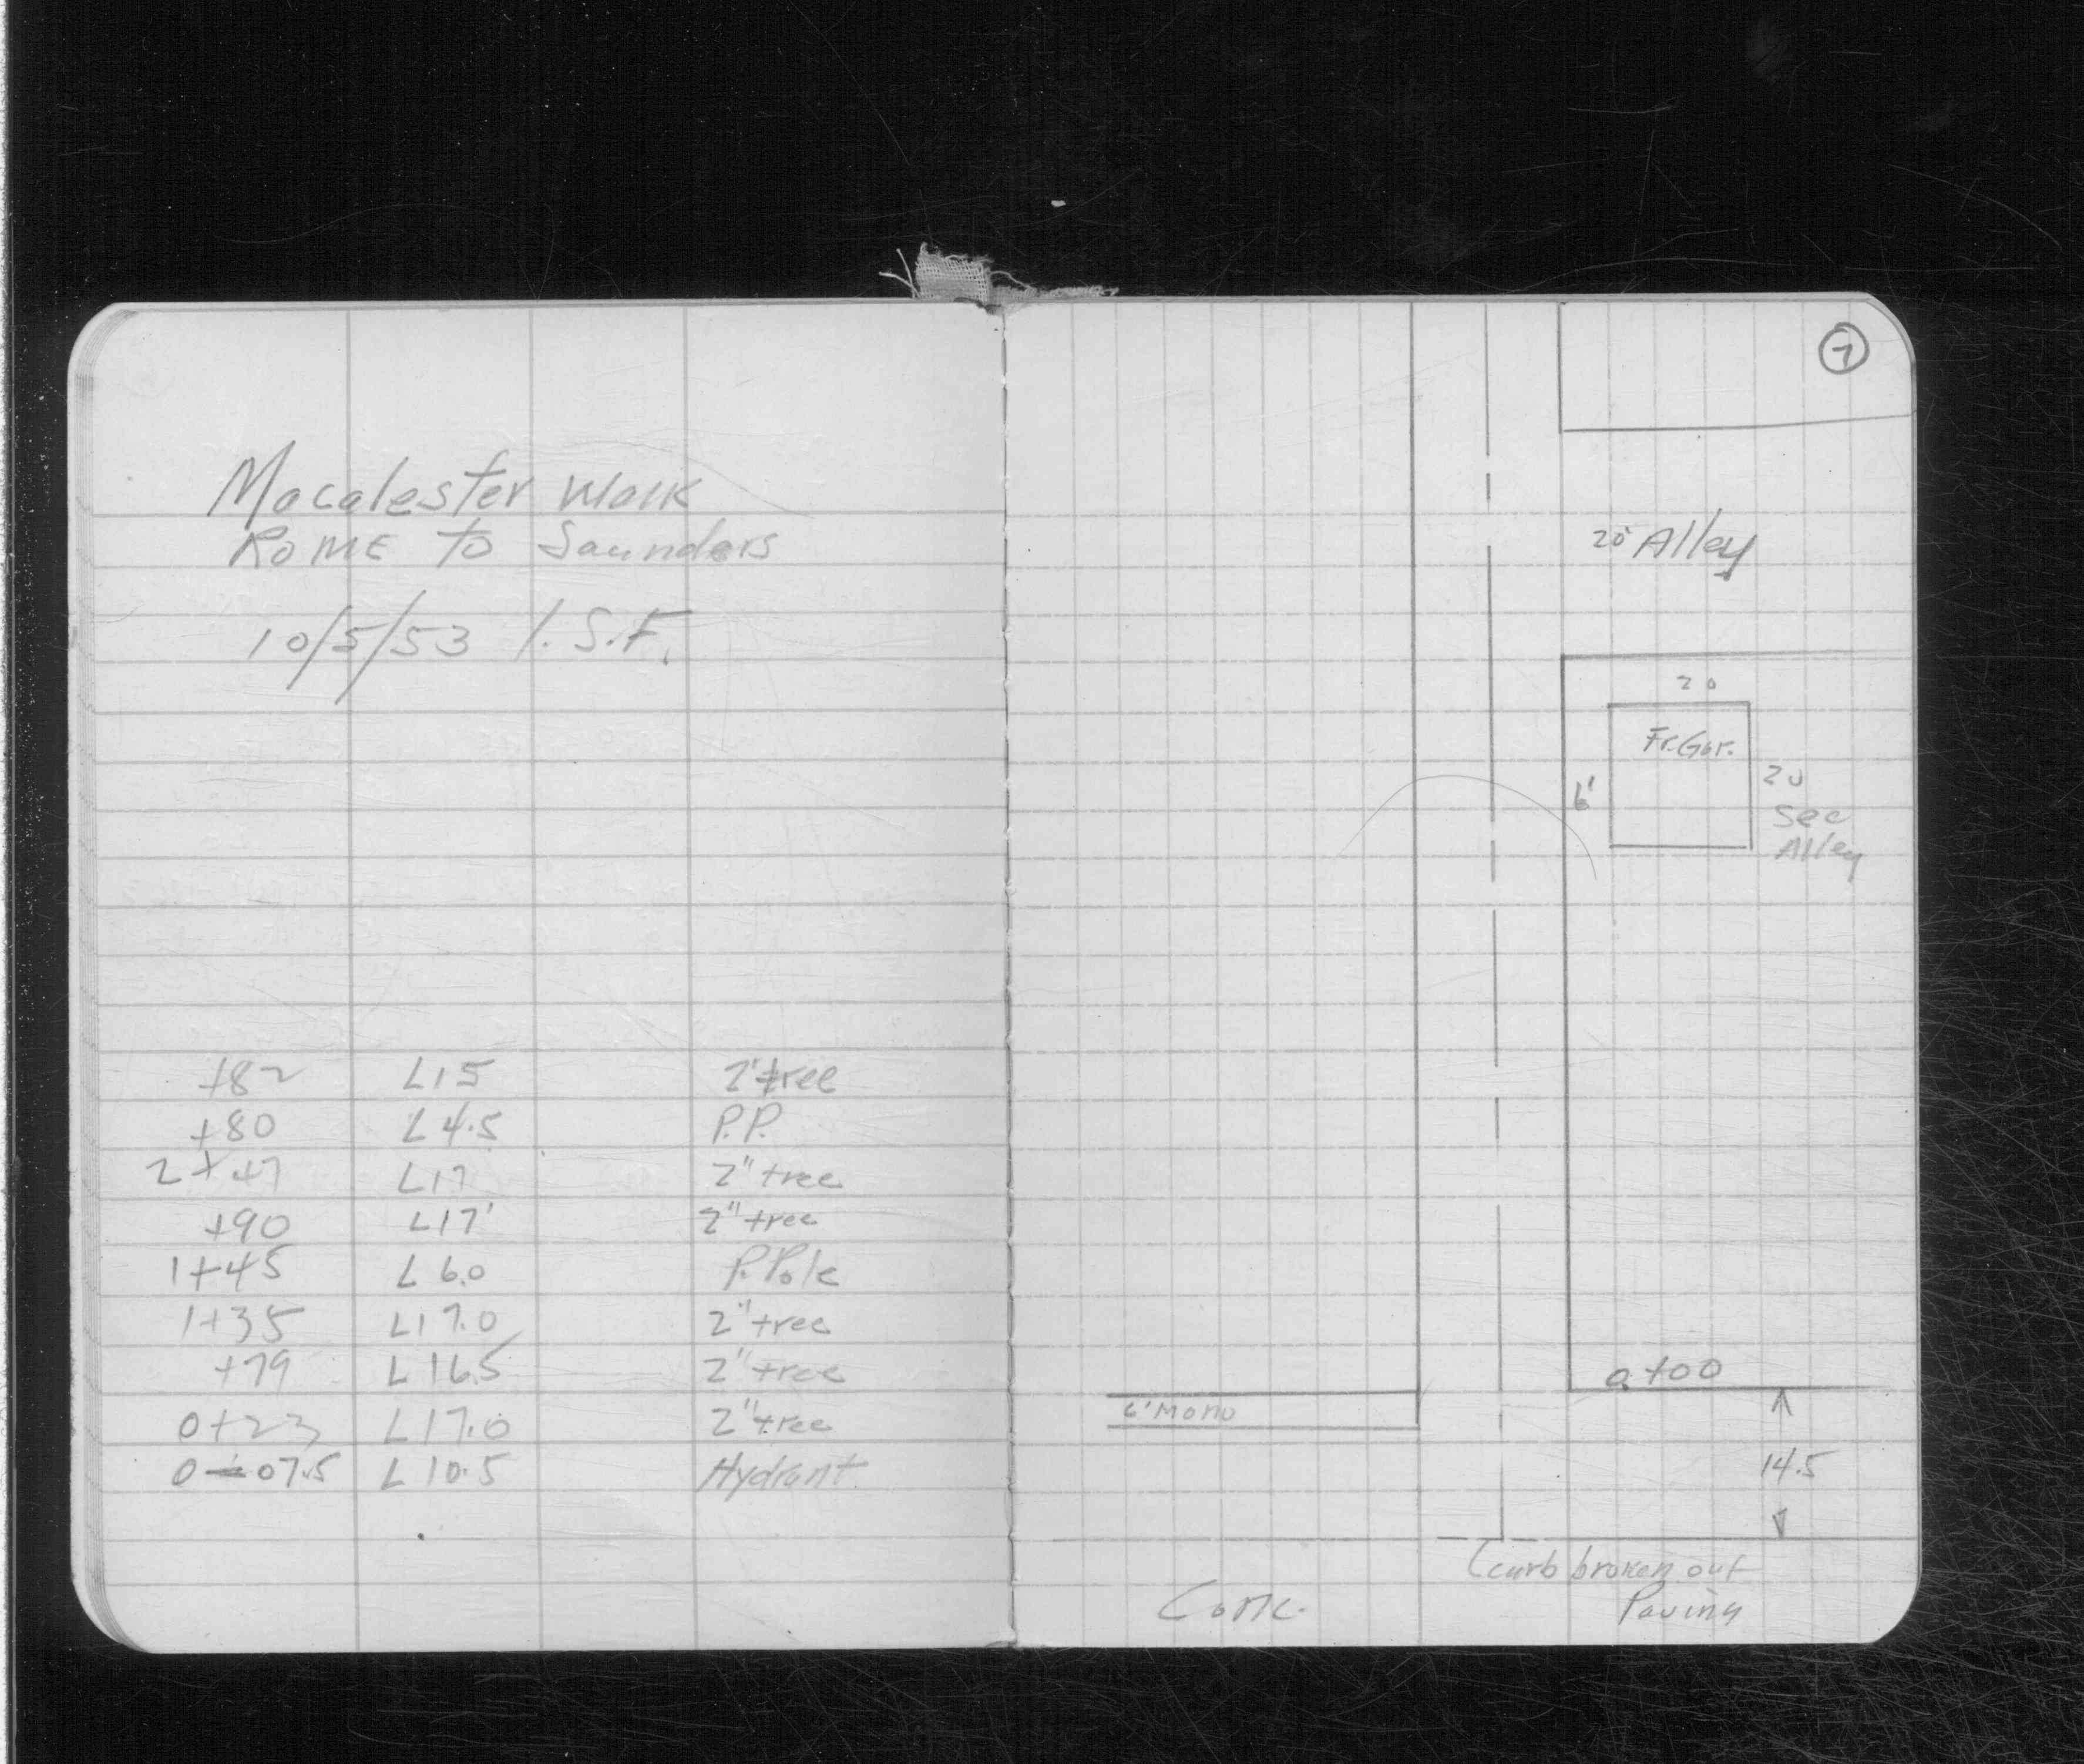 Macalester Walk
ROME to Saunders
10/5/53 I.S.F.
+82 L15 2" tree
+80 L4.5 P.P.
2+47 L17 2" tree
+90 L17' 2" tree
1+45 L6.0 P.Pole
1+35 L17.0 2" tree
+79 L16.5 2" tree
0+23 L17.0 2" tree
0-07.5 L10.5 Hydrant
7
20' Alley
20
Fr. Gar.
6'
20
See
Alley
0+00
6' MONO
14.5
curb broken out
Conc.
Paving